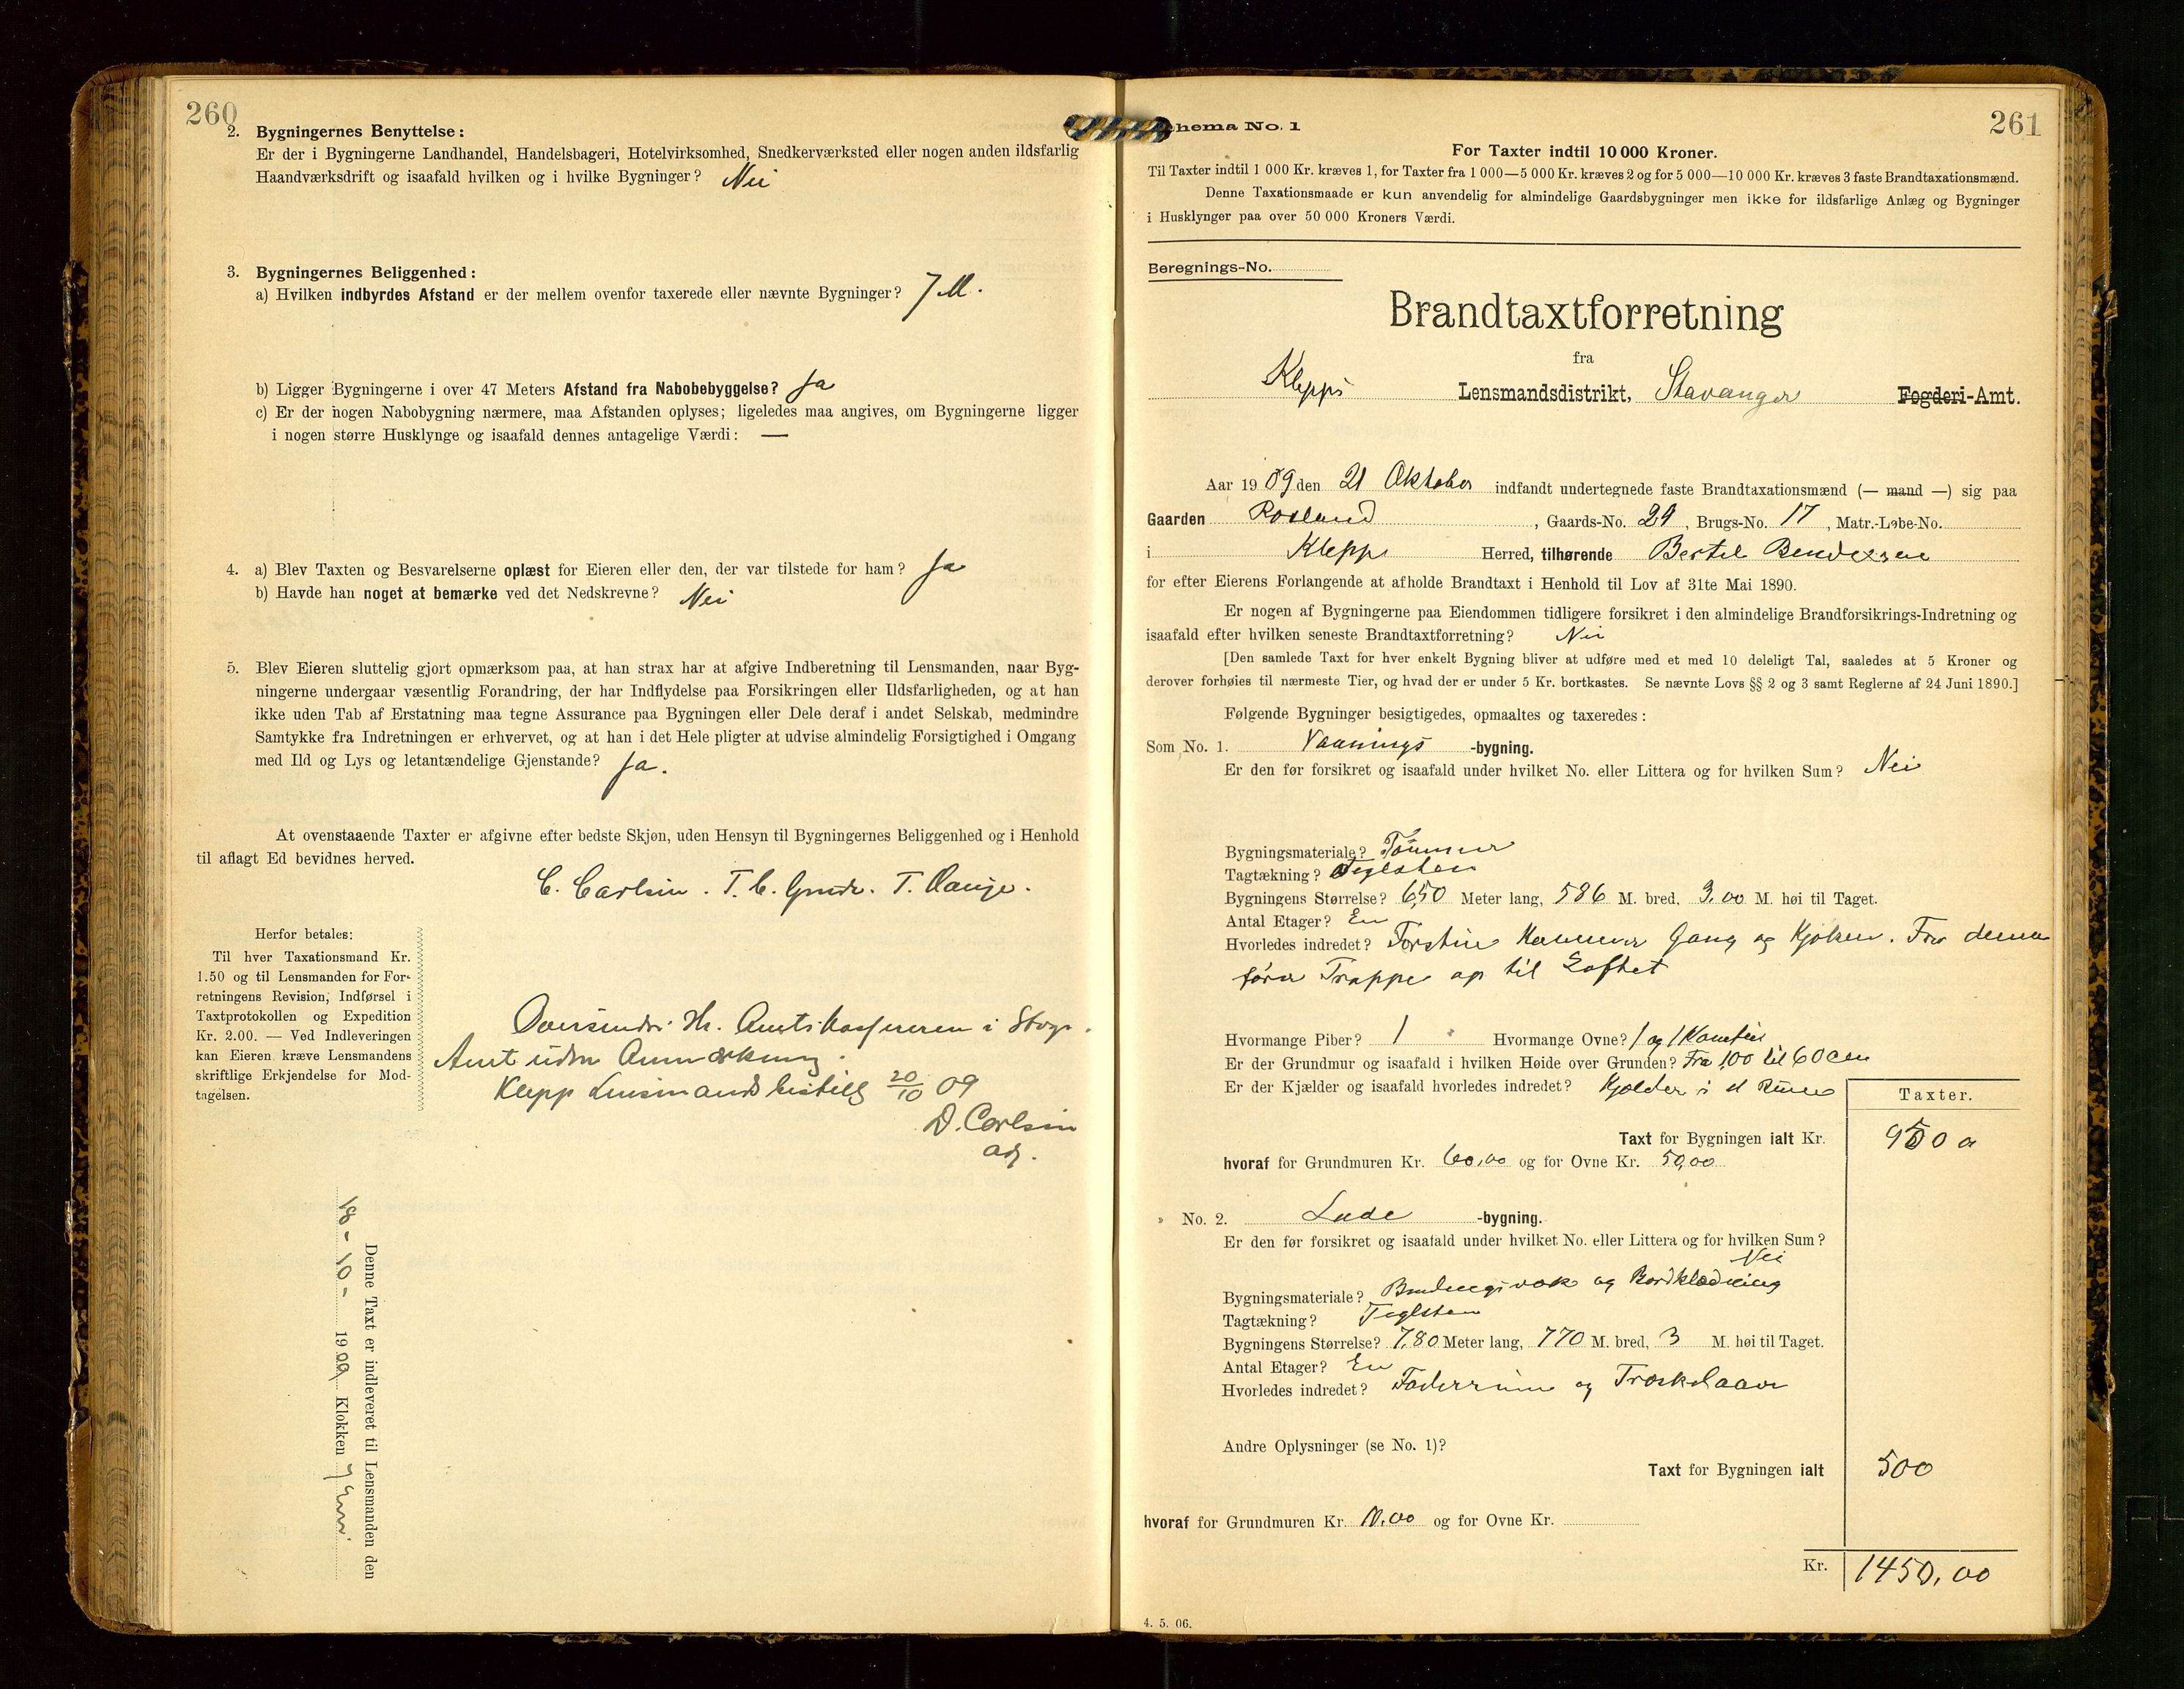 260
2. Bygningernes Benyttelse:
Er der i Bygningerne Landhandel, Handelsbageri, Hotelvirksomhed, Snedkerværksted eller nogen anden ildsfarlig
Haandværksdrift og isaafald hvilken og i hvilke Bygninger? Nei
3. Bygningernes Beliggenhed:
a) Hvilken indbyrdes Afstand er der mellem ovenfor taxerede eller nævnte Bygninger? 7 M.
b) Ligger Bygningerne i over 47 Meters Afstand fra Nabobebyggelse? Ja
c) Er der nogen Nabobygning nærmere, maa Afstanden oplyses; ligeledes maa angives, om Bygningerne ligger
i nogen større Husklynge og isaafald dennes antagelige Værdi: —
4. a) Blev Taxten og Besvarelserne oplæst for Eieren eller den, der var tilstede for ham? Ja
b) Havde han noget at bemærke ved det Nedskrevne? Nei
5. Blev Eieren sluttelig gjort opmærksom paa, at han strax har at afgive Indberetning til Lensmanden, naar Byg-
ningerne undergaar væsentlig Forandring, der har Indflydelse paa Forsikringen eller Ildsfarligheden, og at han
ikke uden Tab af Erstatning maa tegne Assurance paa Bygningen eller Dele deraf i andet Selskab, medmindre
Samtykke fra Indretningen er erhvervet, og at han i det Hele pligter at udvise almindelig Forsigtighed i Omgang
med Ild og Lys og letantændelige Gjenstande? Ja.
At ovenstaaende Taxter er afgivne efter bedste Skjøn, uden Hensyn til Bygningernes Beliggenhed og i Henhold
til aflagt Ed bevidnes herved.
C. Carlsen. T. C. T.
Herfor betales:
Til hver Taxationsmand Kr.
1.50 og til Lensmanden for For-
retningens Revision, Indførsel i
Taxtprotokollen og Expedition
Kr. 2.00. — Ved Indleveringen
kan Eieren kræve Lensmandens
skriftlige Erkjendelse for Mod-
tagelsen.
Oversendes Hr. Amtskassereren i Stvgr.
Amt uden Anmærkning.
Klepp Lensmandsbestill 20/10 09
D. Carlsen
adj.
Denne Taxt er indleveret til Lensmanden den
18 - 10 - 1909 Klokken 7 Em.
Schema No. 1
261
For Taxter indtil 10 000 Kroner.
Til Taxter indtil 1 000 Kr. kræves 1, for Taxter fra 1 000—5 000 Kr. kræves 2 og for 5 000—10 000 Kr. kræves 3 faste Brandtaxationsmænd.
Denne Taxationsmaade er kun anvendelig for almindelige Gaardsbygninger men ikke for ildsfarlige Anlæg og Bygninger
i Husklynger paa over 50 000 Kroners Værdi.
Beregnings-No.
Brandtaxtforretning
fra
Klepps Lensmandsdistrikt, Stavanger Fogderi-Amt.
Aar 1909 den 21 Oktober indfandt undertegnede faste Brandtaxationsmænd (— mand —) sig paa
Gaarden Rosland, Gaards-No. 29, Brugs-No. 17, Matr.-Løbe-No.
i Klepps Herred, tilhørende Bertel Bendixsen
for efter Eierens Forlangende at afholde Brandtaxt i Henhold til Lov af 31te Mai 1890.
Er nogen af Bygningerne paa Eiendommen tidligere forsikret i den almindelige Brandforsikrings-Indretning og
isaafald efter hvilken seneste Brandtaxtforretning? Nei
[Den samlede Taxt for hver enkelt Bygning bliver at udføre med et med 10 deleligt Tal, saaledes at 5 Kroner og
derover forhøies til nærmeste Tier, og hvad der er under 5 Kr. bortkastes. Se nævnte Lovs §§ 2 og 3 samt Reglerne af 24 Juni 1890.]
Følgende Bygninger besigtigedes, opmaaltes og taxeredes:
Som No. 1. Vaanings -bygning.
Er den før forsikret og isaafald under hvilket No. eller Littera og for hvilken Sum? Nei
Bygningsmateriale? Tømmer
Tagtækning? Teglsten
Bygningens Størrelse? 6,50 Meter lang, 586 M. bred, 3,00 M. høi til Taget.
Antal Etager? En
Hvorledes indredet? Forstue Kammer Gang og Kjøken. Fra denne
fører Trappe op til Loftet
Hvormange Piber? 1 Hvormange Ovne? 1 og 1 Komfur
Er der Grundmur og isaafald i hvilken Høide over Grunden? Fra 1,00 til 60 cm
Er der Kjælder og isaafald hvorledes indredet? Kjelder i et Rum
Taxter.
Taxt for Bygningen ialt Kr. 950
hvoraf for Grundmuren Kr. 60,00 og for Ovne Kr. 50,00
No. 2. Lade -bygning.
Er den før forsikret og isaafald under hvilket No. eller Littera og for hvilken Sum?
Nei
Bygningsmateriale? Bindingsværk og Bordklædning
Tagtækning? Teglsten
Bygningens Størrelse? 7,80 Meter lang, 770 M. bred, 3 M. høi til Taget.
Antal Etager? En
Hvorledes indredet? Foderrum og Træskelaave
Andre Oplysninger (se No. 1)?
Taxt for Bygningen ialt 500
hvoraf for Grundmuren Kr. 10,00 og for Ovne Kr.
Kr. 1450,00
4. 5. 06.